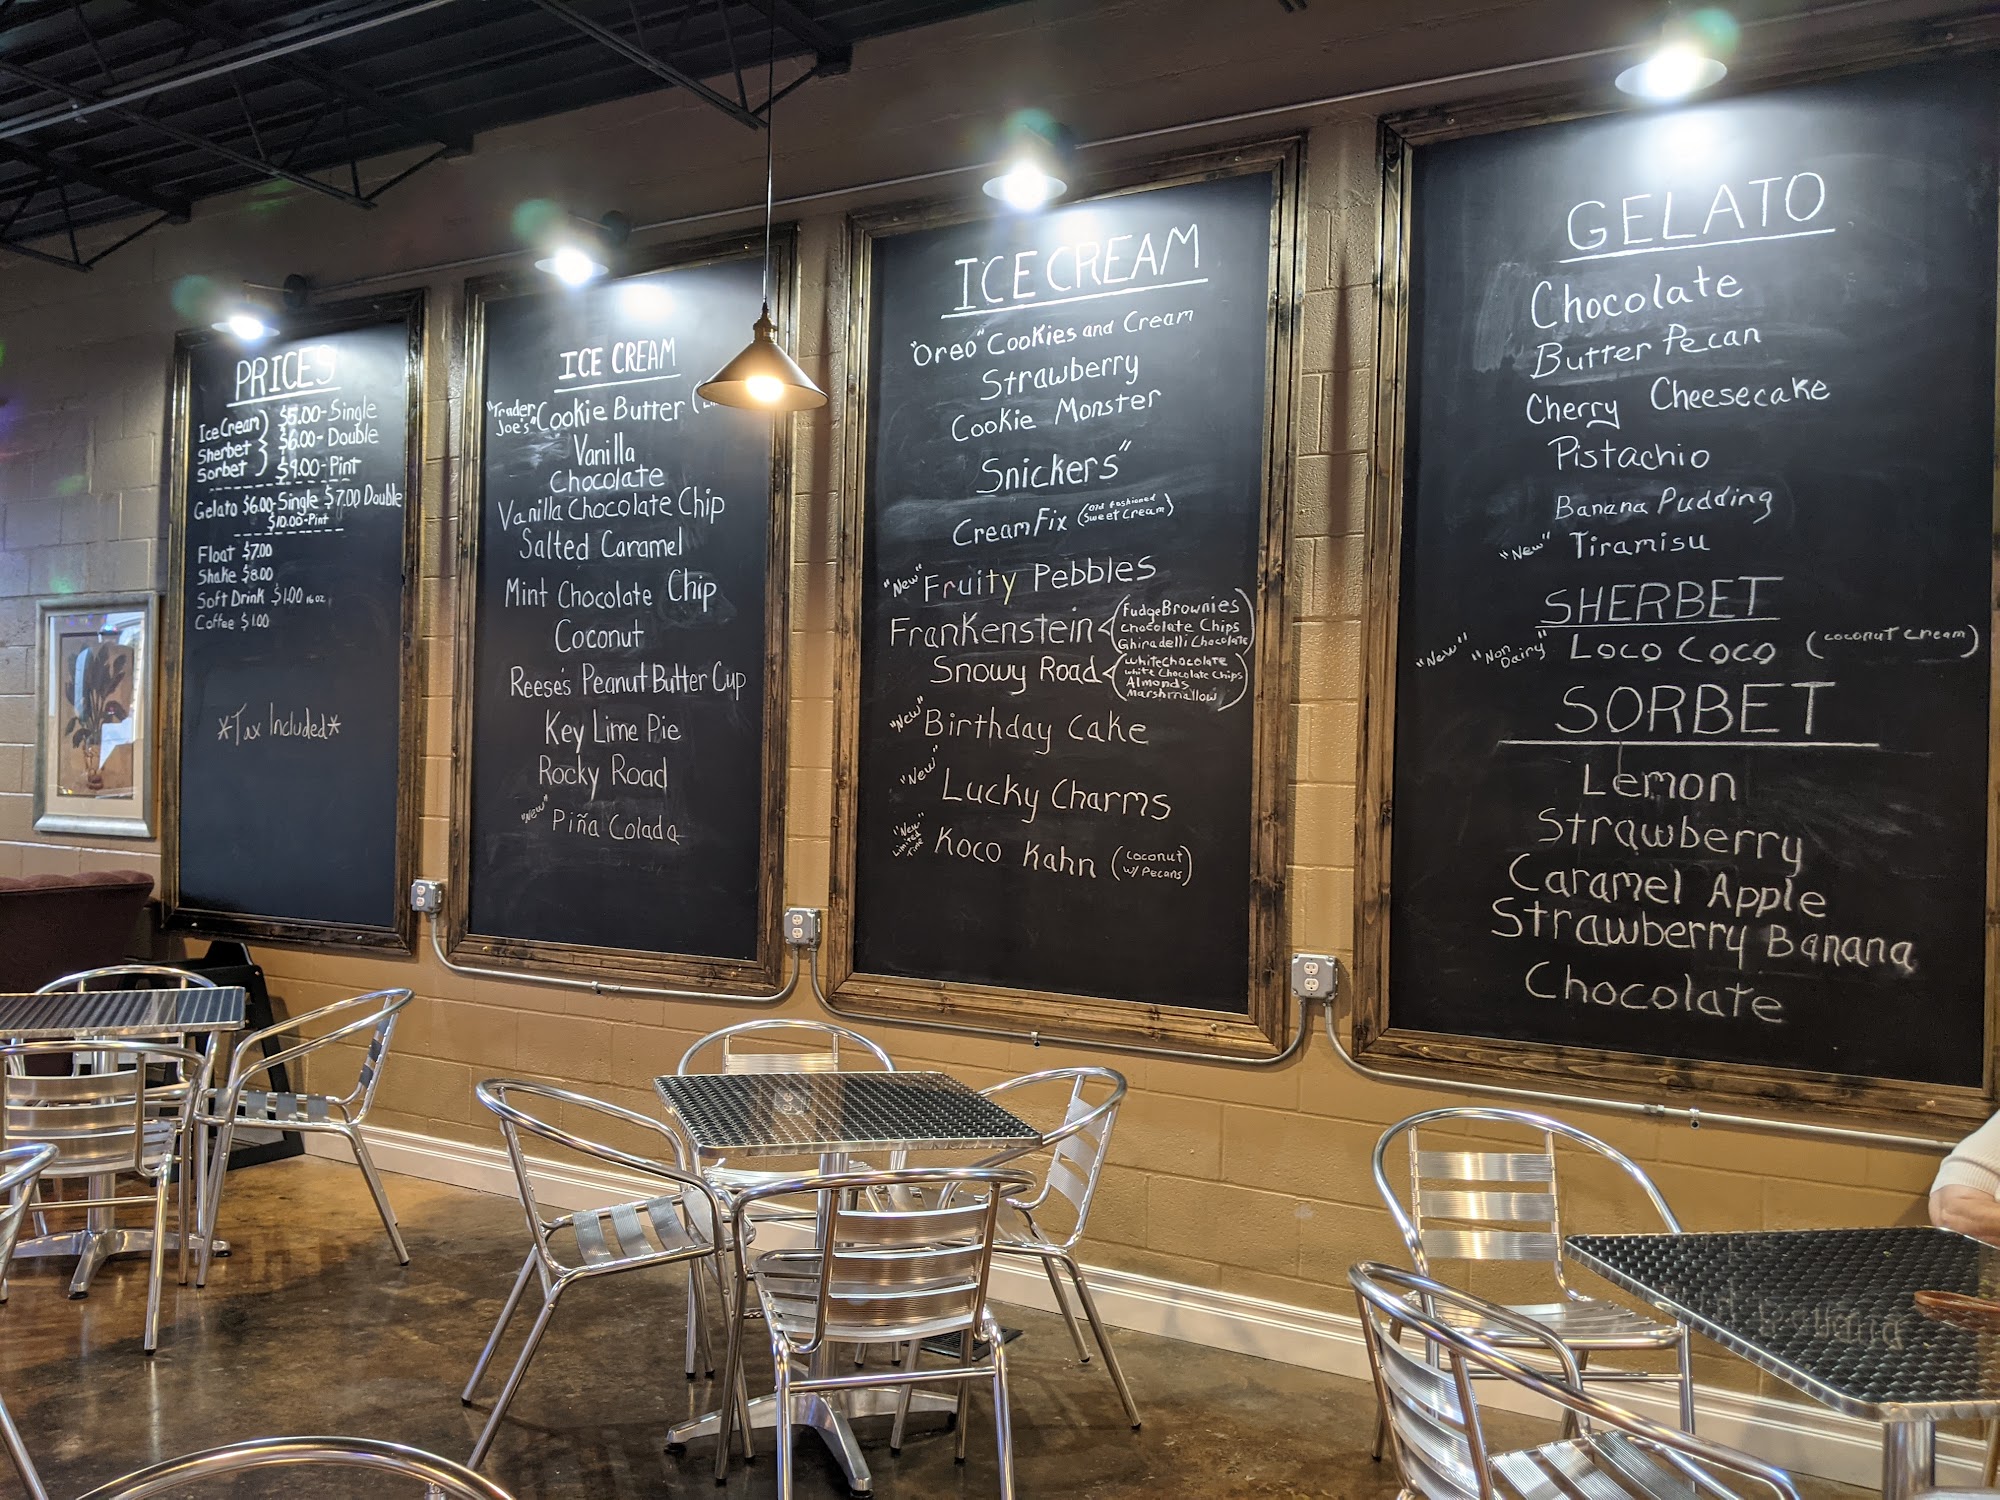 PRICES
Ice Cream } $5.00-Single
Sherbet } $6.00-Double
Sorbet } $9.00-Pint
Gelato $6.00-Single $7.00 Double
$10.00-Pint
Float $7.00
Shake $8.00
Soft Drink $1.00 16 oz
Coffee $1.00
*Tax Included*
ICE CREAM
"Trader Joe's" Cookie Butter
Vanilla
Chocolate
Vanilla Chocolate Chip
Salted Caramel
Mint Chocolate Chip
Coconut
Reese's Peanut Butter Cup
Key Lime Pie
Rocky Road
"New" Piña Colada
ICE CREAM
"Oreo" Cookies and Cream
Strawberry
Cookie Monster
Snickers"
Cream Fix (Old Fashioned Sweet Cream)
"New" Fruity Pebbles
Frankenstein (Fudge Brownies
Chocolate Chips
Ghiradelli Chocolate)
Snowy Road (White Chocolate
White Chocolate Chips
Almonds
Marshmallow)
"New" Birthday Cake
"New" Lucky Charms
"New" Limited Time Koco Kahn (Coconut w/ Pecans)
GELATO
Chocolate
Butter Pecan
Cherry Cheesecake
Pistachio
Banana Pudding
"New" Tiramisu
SHERBET
"New" "Non Dairy" Loco Coco (Coconut Cream)
SORBET
Lemon
Strawberry
Caramel Apple
Strawberry Banana
Chocolate